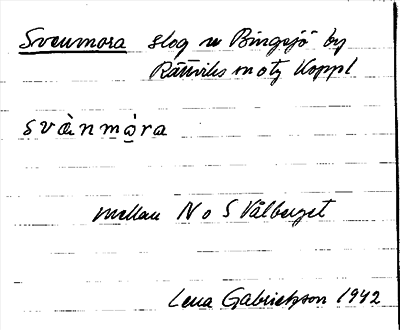 Svenmora slog u Bingsjö by
Rättviks sn o tg Koppl
svànmo̱ra
mellan N o S Vålberget
Lena Gabrielsson 1942